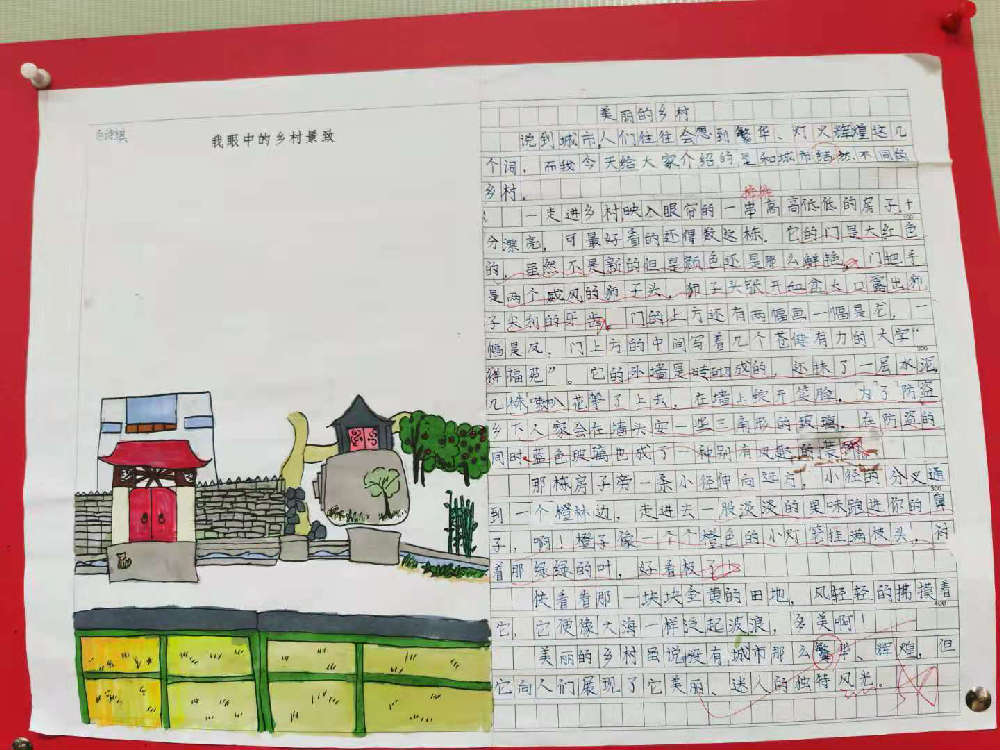 我眼中的乡村景致
美丽的乡村
说到城市人们往往会想到繁华、灯火辉煌这几
个词，而我今天给大家介绍的是和城市截然不同的
乡村。
一走进乡村映入眼帘的一串高高低低的房子十
分漂亮，可最好看的还得数这栋，它的门是大红色
的，虽然不是新的但是颜色还是那么鲜艳。门把手
是两个威风的狮子头，狮子头张开血盆大口露出狮
子尖利的牙齿。门的上方还有两幅画一幅是花，一
幅是凤，门上方的中间写着几个苍健有力的大字“
得福苑”。它的外墙是砖砌成的，还抹了一层水泥
几株喇叭花攀了上去，在墙上绽开笑脸，为了防盗
乡下人家会在墙头安一些三角形的玻璃，在防盗的
同时蓝色玻璃也成了一种别有
那栋房子旁一条小径伸向远方，小径的分叉通
到一个橙林边，走进去一股淡淡的果味跑进你的鼻
子，啊！橙子像一个个橙色的小灯笼挂满枝头，衬
着那绿绿的叶，好看极
快看看那一块块金黄的田地，风轻轻的拂摸着
它，它便像大海一样泛起波浪，多美啊！
美丽的乡村虽说没有城市那么繁华、辉煌，但
它向人们展现了它美丽、迷人的独特风光。